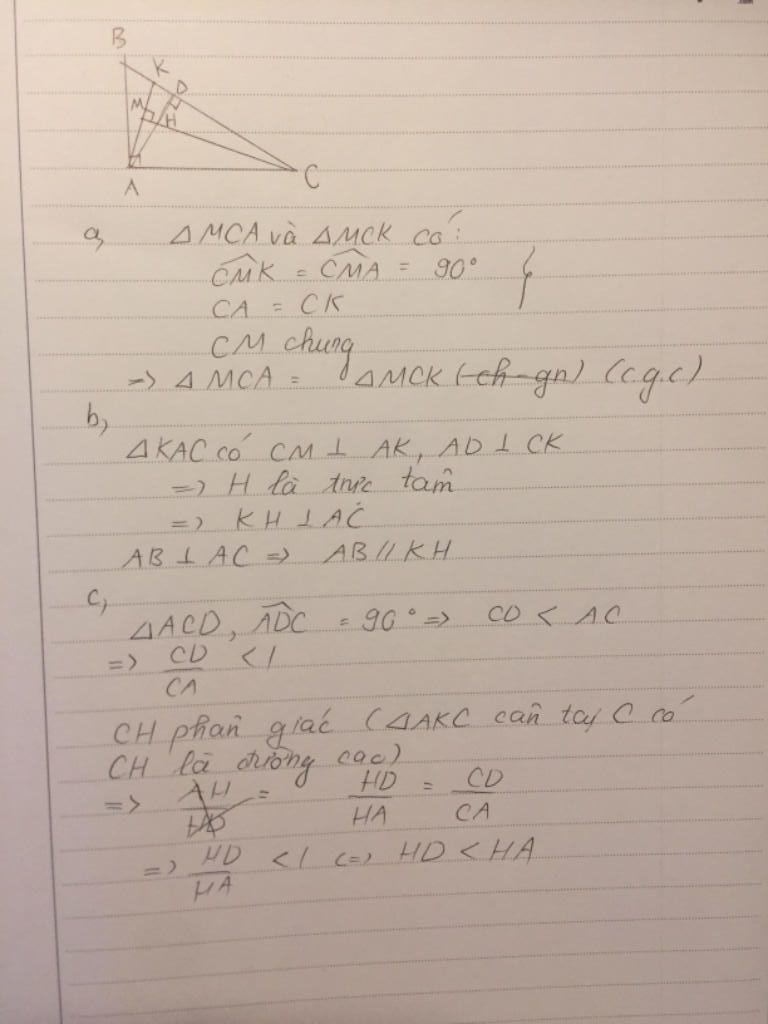 B
K
D
M
H
A
C
a, △MCA và △MCK có:
CMK = CMA = 90°
CA = CK
CM chung
=> △MCA = △MCK (ch-gn) (c.g.c)
b,
△KAC có CM ⊥ AK, AD ⊥ CK
=> H là trực tâm
=> KH ⊥ AC
AB ⊥ AC => AB // KH
c,
△ACD, ADC = 90° => CD < AC
=> CD/CA < 1
CH phân giác (△AKC cân tại C có
CH là đường cao)
=> AH/HD = HD/HA = CD/CA
=> HD/HA < 1 <=> HD < HA